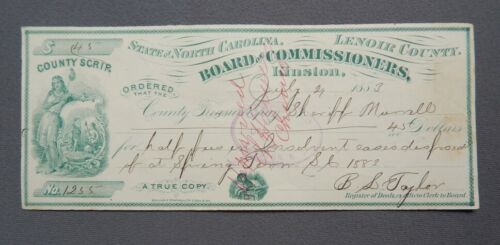 $ 45
STATE OF NORTH CAROLINA, LENOIR COUNTY.
COUNTY SCRIP.
BOARD OF COMMISSIONERS,
Kinston, July 2 1883
ORDERED,
THAT THE
County Treasurer pay Sheriff
45 Dollars
for half fees in insolvent cases disposed
of at Spring Term S C 1882
No. 1255
A TRUE COPY.
B. S. Taylor
Register of Deeds and Clerk to Board.